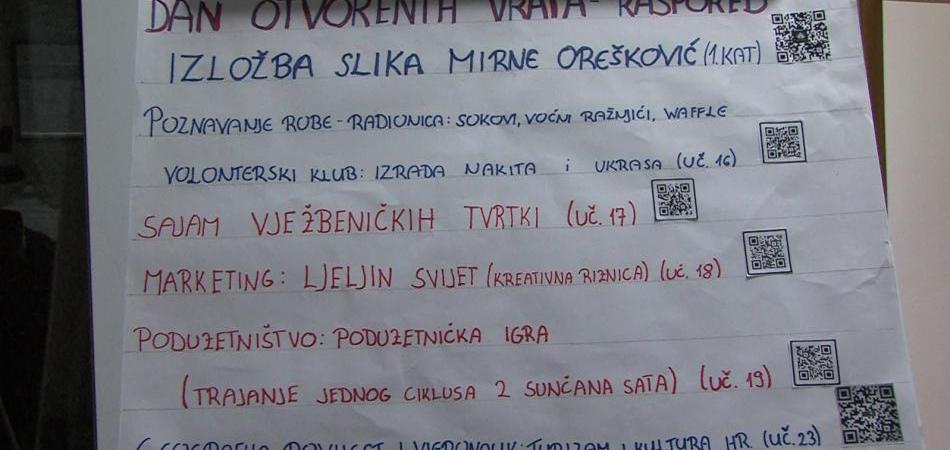 DAN OTVORENIH VRATA - RASPORED
IZLOŽBA SLIKA MIRNE OREŠKOVIĆ (1. KAT)
POZNAVANJE ROBE - RADIONICA: SOKOVI, VOĆNI RAŽNJIĆI, WAFFLE
VOLONTERSKI KLUB: IZRADA NAKITA i UKRASA (UČ. 16)
SAJAM VJEŽBENIČKIH TVRTKI (UČ. 17)
MARKETING: LJELJIN SVIJET (KREATIVNA RIZNICA) (UČ. 18)
PODUZETNIŠTVO: PODUZETNIČKA IGRA
(TRAJANJE JEDNOG CIKLUSA 2 SUNČANA SATA) (UČ. 19)
GEOGRAFIJA, POVIJEST I VJERONAUK: TURIZAM I KULTURA HR (UČ. 23)